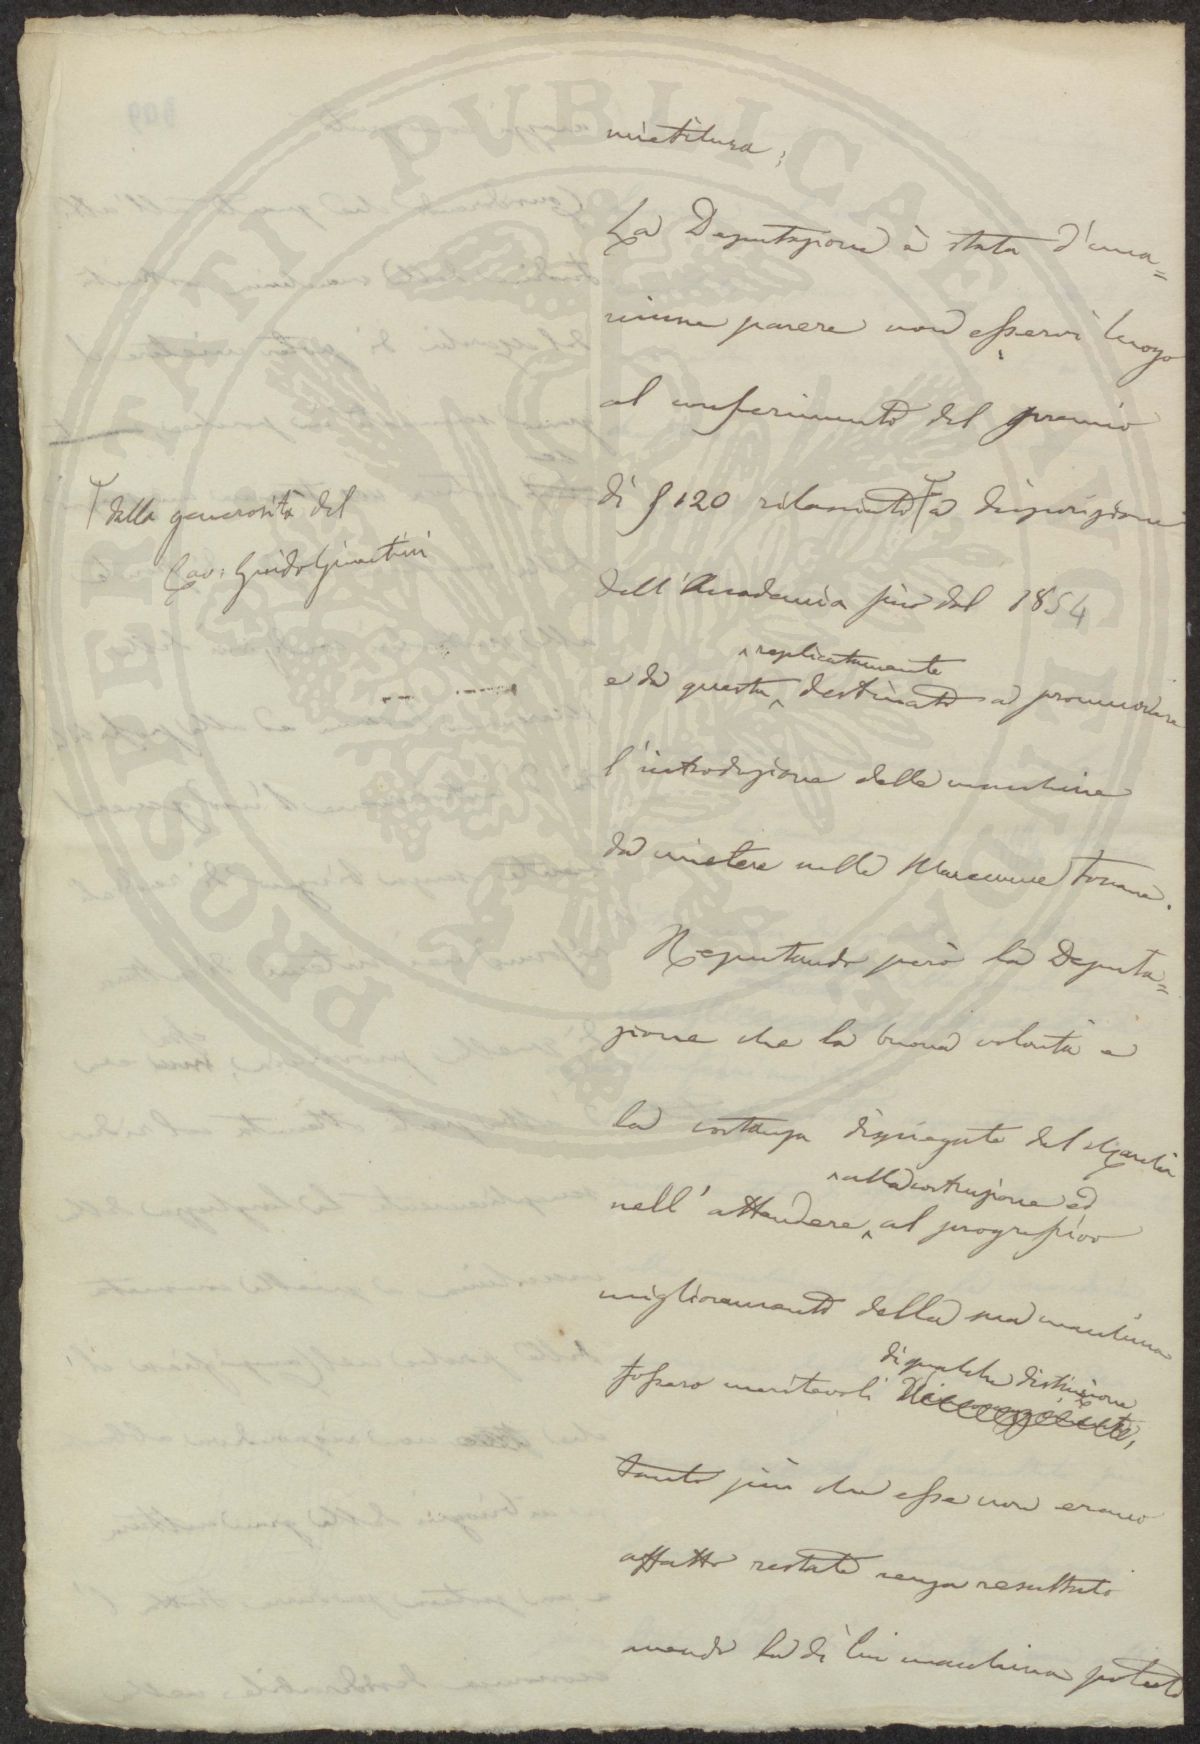 mietitura;
La Deputazione è stata d'una=
nime parere non esservi luogo
al conferimento del premio
di £ 120 rilasciato a disposizione
dalla generosità del
Cav: Guido Giuntini
dell'Accademia fino dal 1854
e da questa replicatamente destinato a promuovere
l'introduzione delle macchine
da mietere nelle Maremme Toscane.
Reputando però la Deputa=
zione che la buona volontà e
la costanza dispiegate del
nell'attendere alla costruzione ed al progressivo
miglioramento della sua macchina
fossero meritevoli di qualche distinzione
tanto più che esse non erano
affatto restate senza resultato
avendo la di lui macchina potuto
PROSPERITATI PUBLICAE AUGENDAE